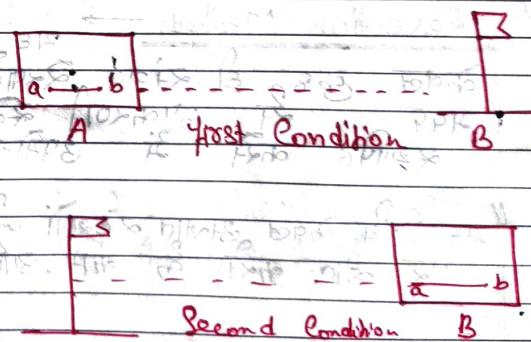 a b
A first Condition B
a b
Second Condition B